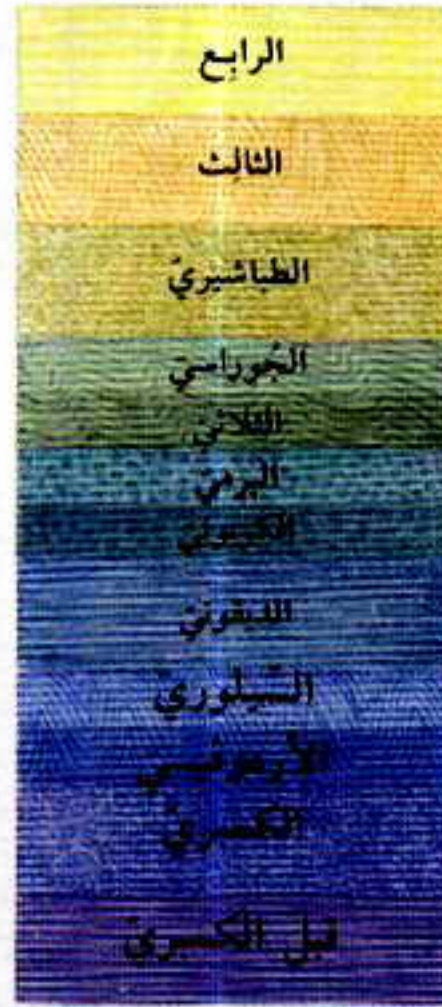 الرابع
الثالث
الطباشيري
الجوراسي
الثلاثي
البرمي
الكربوني
الديڤوني
السيلوري
الأردوڤيسي
الكمبري
قبل الكمبري